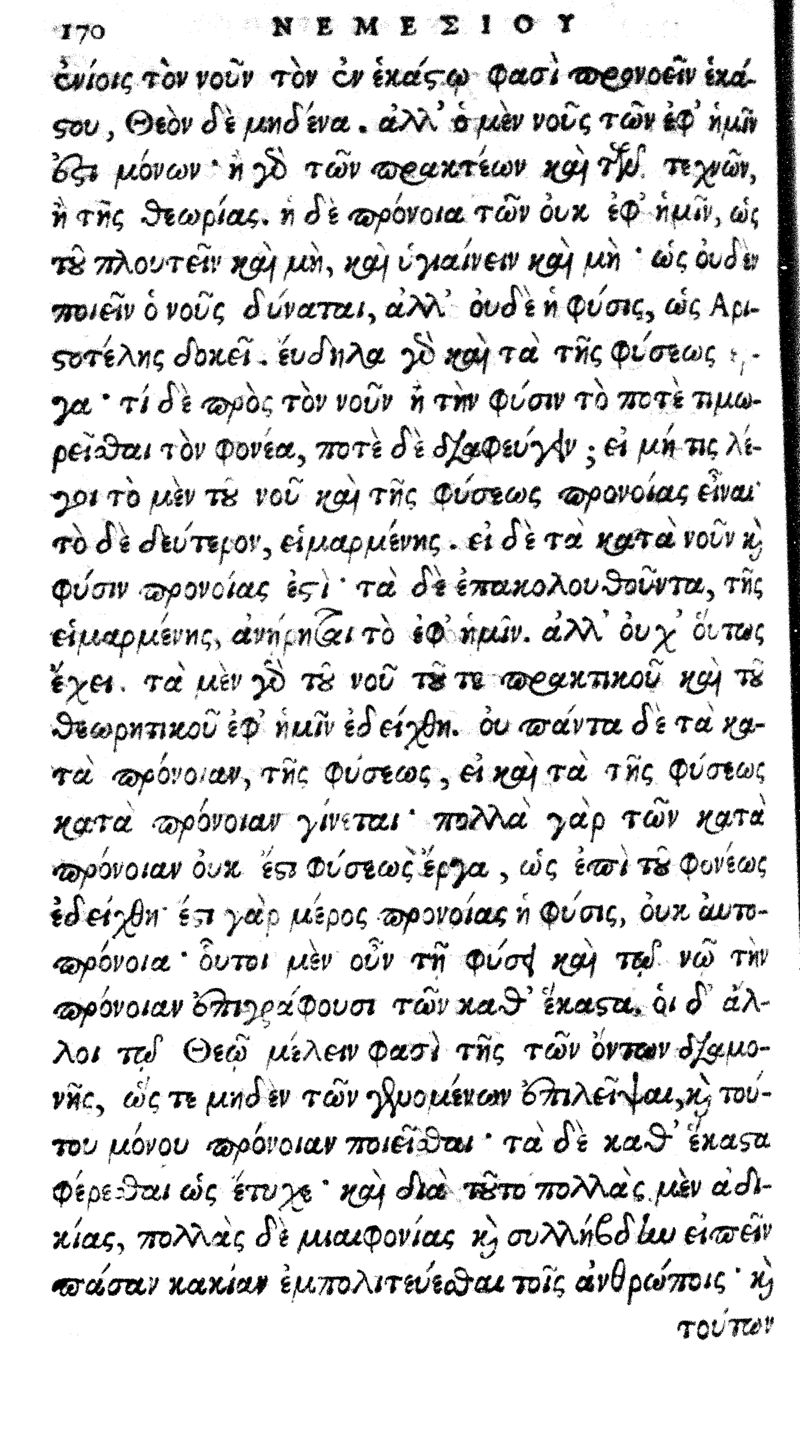 170 ΝΕΜΕΣΙΟΥ
ἐνίοις τὸν νοῦν τὸν ἐν ἑκάστῳ φασὶ προνοεῖν ἑκά-
στου, Θεὸν δὲ μηδένα. ἀλλ' ὁ μὲν νοῦς τῶν ἐφ' ἡμῖν
ἐστι μόνων· ἢ γὸ τῶν πρακτέων καὶ τῶν τεχνῶν,
ἢ τῆς θεωρίας. ἡ δὲ πρόνοια τῶν οὐκ ἐφ' ἡμῖν, ὡς
τοῦ πλουτεῖν καὶ μὴ, καὶ ὑγιαίνειν καὶ μὴ· ὡς οὐδὲν
ποιεῖν ὁ νοῦς δύναται, ἀλλ' οὐδὲ ἡ φύσις, ὡς Ἀρι-
στοτέλης δοκεῖ. εὔδηλα γὸ καὶ τὰ τῆς φύσεως
γα· τί δὲ πρὸς τὸν νοῦν ἢ τὴν φύσιν τὸ ποτὲ τιμω-
ρεῖσθαι τὸν φονέα, ποτὲ δὲ διαφεύγειν; εἰ μή τις λέ-
γοι τὸ μὲν τοῦ νοῦ καὶ τῆς φύσεως προνοίας εἶναι·
τὸ δὲ δεύτερον, εἱμαρμένης. εἰ δὲ τὰ κατὰ νοῦν καὶ
φύσιν προνοίας ἐστὶ· τὰ δὲ ἐπακολουθοῦντα, τῆς
εἱμαρμένης, ἀνῄρηται τὸ ἐφ' ἡμῖν. ἀλλ' οὐχ' οὕτως
ἔχει. τὰ μὲν γὸ τοῦ νοῦ τοῦ τε πρακτικοῦ καὶ τοῦ
θεωρητικοῦ ἐφ' ἡμῖν ἐδείχθη. οὐ πάντα δὲ τὰ κα-
τὰ πρόνοιαν, τῆς φύσεως, εἰ καὶ τὰ τῆς φύσεως
κατὰ πρόνοιαν γίνεται· πολλὰ γὰρ τῶν κατὰ
πρόνοιαν οὐκ ἔστι φύσεως ἔργα, ὡς ἐπὶ τοῦ φονέως
ἐδείχθη· ἔστι γὰρ μέρος προνοίας ἡ φύσις, οὐκ αὐτο-
πρόνοια· οὗτοι μὲν οὖν τῇ φύσει καὶ τῷ νῷ τὴν
πρόνοιαν ἐπιγράφουσι τῶν καθ' ἕκαστα. οἱ δ' ἄλ-
λοι τῷ Θεῷ μέλειν φασὶ τῆς τῶν ὄντων διαμο-
νῆς, ὥς τε μηδὲν τῶν γενομένων ἐπιλεῖψαι, καὶ τού-
του μόνου πρόνοιαν ποιεῖσθαι· τὰ δὲ καθ' ἕκαστα
φέρεσθαι ὡς ἔτυχε· καὶ διὰ τοῦτο πολλὰς μὲν ἀδι-
κίας, πολλὰς δὲ μιαιφονίας καὶ συλλήβδην εἰπεῖν
πᾶσαν κακίαν ἐμπολιτεύεσθαι τοῖς ἀνθρώποις· καὶ
τούτων